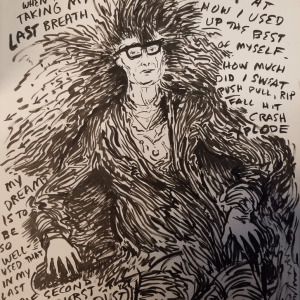 WHEN
TAKING MY
LAST BREATH
AT
HOW I USED
UP THE BEST
OF MYSELF.
HOW MUCH
DID I SWEAT
PUSH PULL, RIP
FALL HIT
CRASH
PLODE
MY
DREAM
IS TO
BE
SO
WELL-
USED THAT
IN MY
LAST
SECOND
BURST
DUST